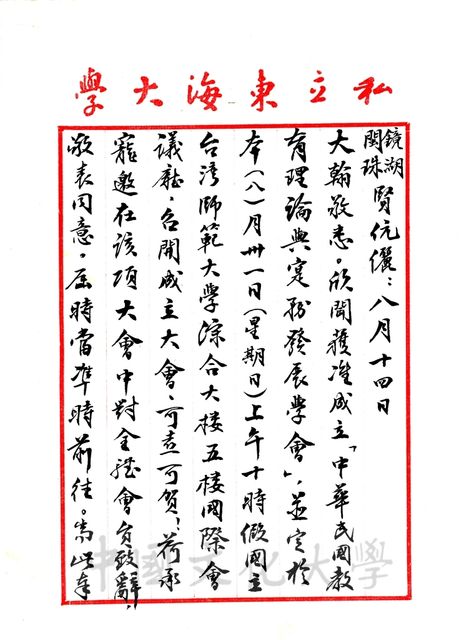 私立東海大學
鏡湖
閔珠 賢伉儷：八月十四日
大翰敬悉。欣聞獲准成立「中華民國教
育理論與實務發展學會」，並定於
本（八）月卅一日（星期日）上午十時假國立
台灣師範大学綜合大楼五楼國際會
議廳，召開成立大會，可喜可賀！荷承
寵邀在該項大會中對全體會員致辭，
敬表同意。屆時當準時前往。耑此奉
中國文化大學